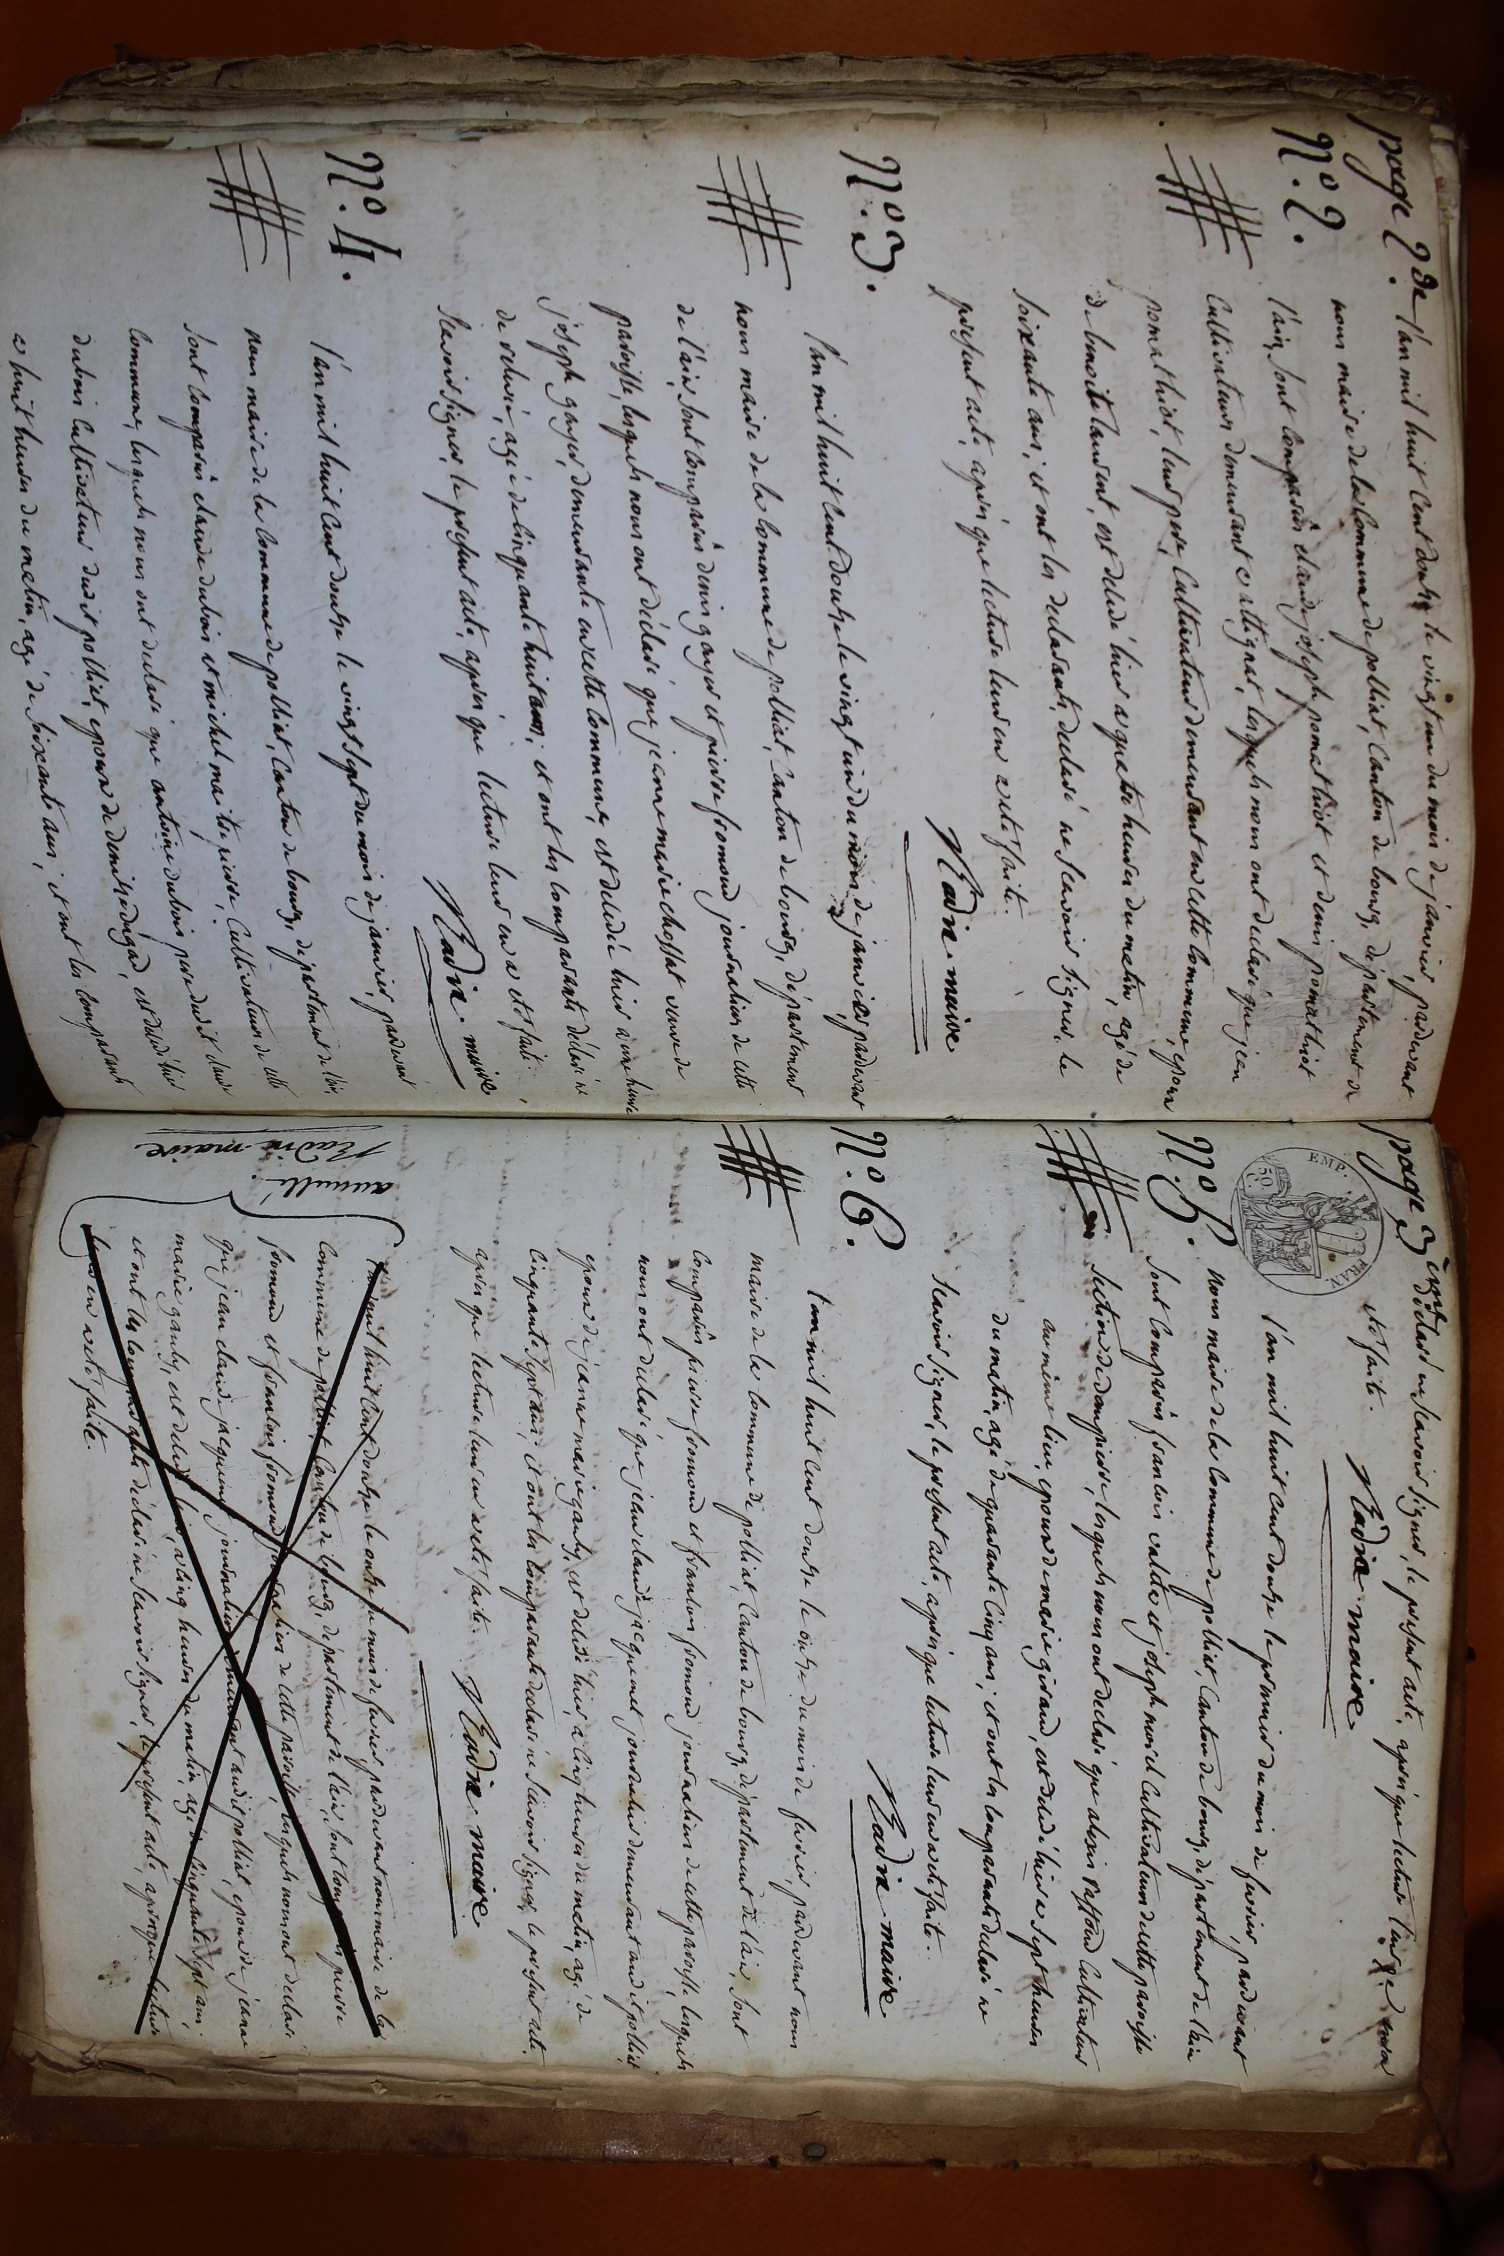 page 2de
N.o 2.
l'an mil huit cent douze le vingt un du mois de janvier, pardevant
nous maire de la commune de polliat, canton de bourg, département de
l'ain, sont comparûs claude joseph pomathiot et denis pomathiot
cultivateurs demeurant a attignat, lesquels nous ont déclaré que jean
pomathiot, leur pere, cultivateur demeurant en cette commune, epoux
de benoite laurent, est décédé hier a quatre heures du matin, agé de
soixante ans; et ont les déclarants déclaré ne scavoir signer, le
présent acte, après que lecture leur en a été faite.
Nadin. maire
N.o 3.
l'an mil huit cent douze le vingt un du mois de janvier, pardevant
nous maire de la commune de polliat, canton de bourg, département
de l'ain, sont comparûs denis goyer et pierre fromond journaliers de cette
paroisse, lesquels nous ont déclaré que jeanne marie chossat veuve de
joseph goyer, demeurante en cette commune, est décédée hier a une heure
de relevée, agée de cinquante huit ans; et ont les comparants déclaré ne
scavoir signer, le présent acte, après que lecture leur en a été fait.
Nadin. maire
N.o 4.
l'an mil huit cent douze le vingt sept du mois de janvier, pardevant
nous maire de la commune de polliat, canton de bourg, département de l'ain,
sont comparûs claude dubois et michel maitrepierre, cultivateurs de cette
commune, lesquels nous ont déclaré que antoine dubois pere dudit claude
dubois cultivateur dudit polliat, epoux de denise, est décédé hier
a huit heures du matin, agé de soixante ans; et ont les comparants
page 3eme
déclaré ne scavoir signer, le présent acte, après que lecture leur en a
été faite.
Nadin maire
EMP. FRAN.
50 C.
N.o 5.
l'an mil huit cent douze le premier du mois de fevrier, pardevant
nous maire de la commune de polliat, canton de bourg, département de l'ain
sont comparûs francois et joseph morel cultivateurs de cette paroisse
section de dompierre, lesquels nous ont déclaré que alexis cultivateur
au même lieu, epoux de marie giraud, est décédé hier a sept heures
du matin, agé de quarante cinq ans; et ont les comparants déclaré ne
scavoir signer, le présent acte, après que lecture leur en a été faite.
Nadin maire
N.o 6.
l'an mil huit cent douze le onze du mois de fevrier, pardevant nous
maire de la commune de polliat, canton de bourg, département de l'ain, sont
comparûs pierre fromond et francois fromond journaliers de cette paroisse, lesquels
nous ont déclaré que jean claude jacquemet journalier demeurant audit polliat
epoux de jeanne marie gauly, est décédé hier, a cinq heures du matin, agé de
cinquante sept ans; et ont les comparants déclaré ne scavoir signer, le présent acte
après que lecture leur en a été faite.
Nadin. maire
annullé.
Nadin maire
l'an mil huit cent douze le onze du mois de fevrier pardevant nous maire de la
commune de polliat, canton de bourg, département de l'ain, sont comparûs pierre
fromond et francois fromond journaliers de cette paroisse, lesquels nous ont déclaré
que jean claude jacquemet journalier demeurant audit polliat, epoux de jeanne
marie gauly, est décédé hier, a cinq heures du matin, agé de cinquante sept ans;
et ont les comparants déclaré ne scavoir signer, le présent acte, après que lecture
leur en a été faite.